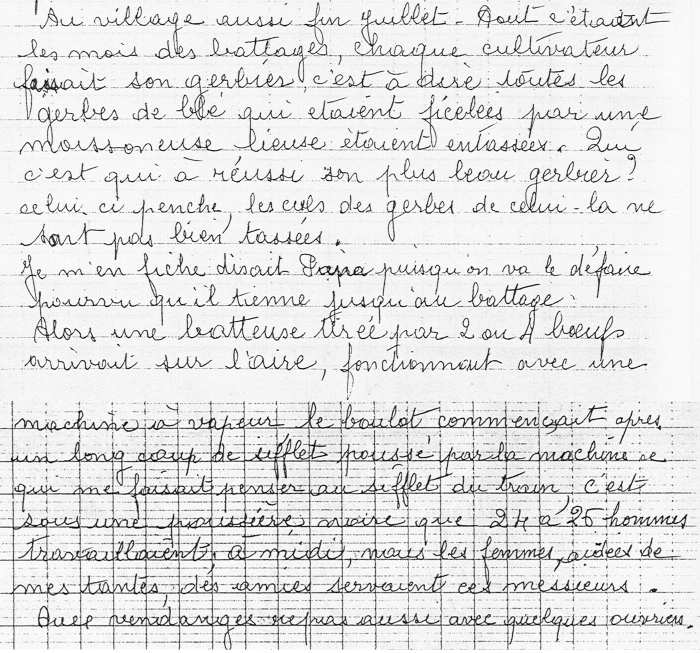 Au village aussi fin Juillet - Aout c'étaient
les mois des battages, chaque cultivateur
faisait son gerbier, c'est à dire toutes les
gerbes de blé qui etaient ficelées par une
moissoneuse lieuse étaient entassées. Qui
c'est qui à réussi son plus beau gerbier?
celui ci penche, les culs des gerbes de celui-la ne
sont pas bien tassées.
Je m'en fiche disait Papa puisqu'on va le défaire
pourvu qu'il tienne jusqu'au battage.
Alors une batteuse tirée par 2 ou 4 bœufs
arrivait sur l'aire, fonctionnant avec une
machine à vapeur le boulot commençait apres
un long coup de sifflet poussé par la machine ce
qui me faisait penser au sifflet du train, c'est
sous une poussière noire que 24 à 26 hommes
travaillaient, à midi, nous les femmes, aidées de
mes tantes, des amies servaient ces messieurs.
Aux vendanges repas aussi avec quelques ouvriers.